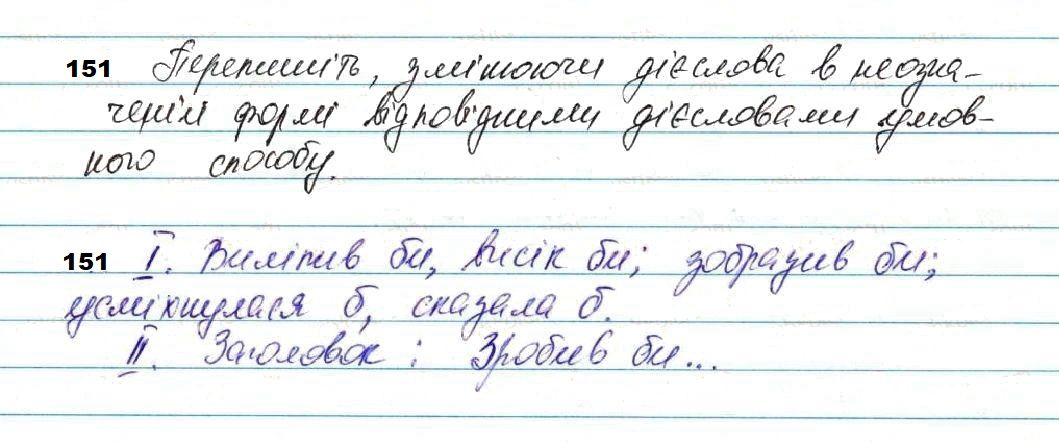 151 Перепишіть, змінюючи дієслова в неозна-
ченій формі відповідними дієсловами умов-
ного способу.
151 І. Виліпив би, висік би; зобразив би;
усміхнулася б, сказала б.
ІІ. Заголовок: Зробив би...